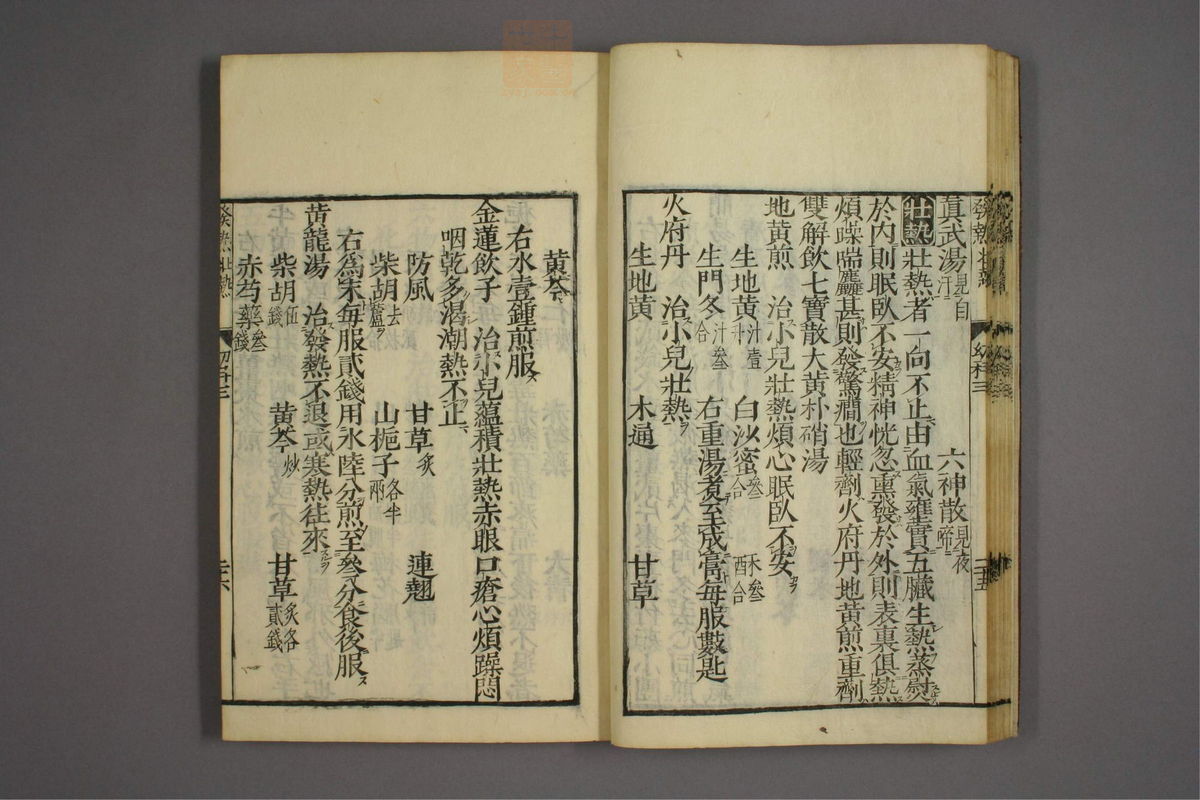 真武湯見自汗 六神散見夜啼
壯熱 壯熱者一向不止由血氣壅實五臟生熱蒸熨
於內則眠臥不安精神恍忽熏發於外則表裏俱熱
煩躁喘麤甚則發驚癇也輕劑火府丹地黃煎重劑
雙解飲七寶散大黃朴硝湯
地黃煎 治小兒壯熱煩心眠臥不安
生地黃汁壹升 白沙蜜叄合 酥叄合
生門冬汁叄合 右重湯煮至成膏每服數匙
火府丹 治小兒壯熱
生地黃 木通 甘草
黃芩
右水壹鍾煎服
金蓮飲子 治小兒蘊積壯熱赤眼口瘡心煩躁悶
咽乾多渴潮熱不止
防風 甘草炙 連翹
柴胡去蘆 山梔子各半兩
右為末每服貳錢用水陸分煎至叄分食後服
黃龍湯 治發熱不退或寒熱往來
柴胡伍錢 黃芩炒 甘草炙各貳錢
赤芍藥叄錢
發熱壯熱 幼科三